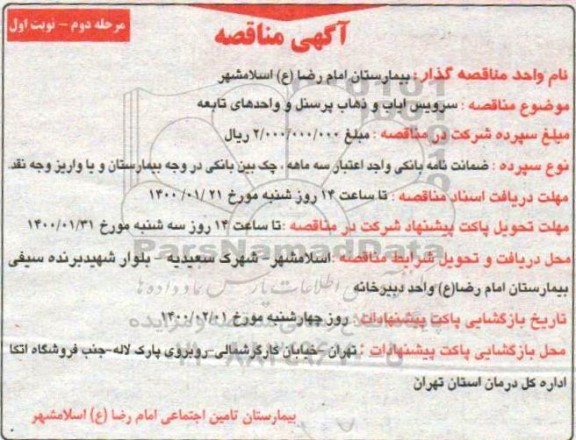 مرحله دوم – نوبت اول
آگهی مناقصه
نام واحد مناقصه گذار : بیمارستان امام رضا (ع) اسلامشهر
موضوع مناقصه : سرویس ایاب و ذهاب پرسنل و واحدهای تابعه
مبلغ سپرده شرکت در مناقصه : مبلغ ۲/۰۰۰/۰۰۰/۰۰۰ ریال
نوع سپرده : ضمانت نامه بانکی واجد اعتبار سه ماهه ، چک بین بانکی در وجه بیمارستان و یا واریز وجه نقد
مهلت دریافت اسناد مناقصه : تا ساعت ۱۴ روز شنبه مورخ ۲۱ /۱۴۰۰/۰۱
مهلت تحویل پاکت پیشنهاد شرکت در مناقصه : تا ساعت ۱۴ روز سه شنبه مورخ ۱۴۰۰/۰۱/۳۱
محل دریافت و تحویل شرایط مناقصه :اسلامشهر - شهرک سعیدیه - بلوار شهیدبرنده سیفی
بیمارستان امام رضا(ع) واحد دبیرخانه
تاریخ بازگشایی پاکت پیشنهادات : روز چهارشنبه مورخ ۱۴۰۰/۰۲/۰۱
محل بازگشایی پاکت پیشنهادات : تهران -خیابان کارگرشمالی-روبروی پارک لاله-جنب فروشگاه اتکا
اداره کل درمان استان تهران
بیمارستان تامین اجتماعی امام رضا (ع) اسلامشهر
ParsNamadData